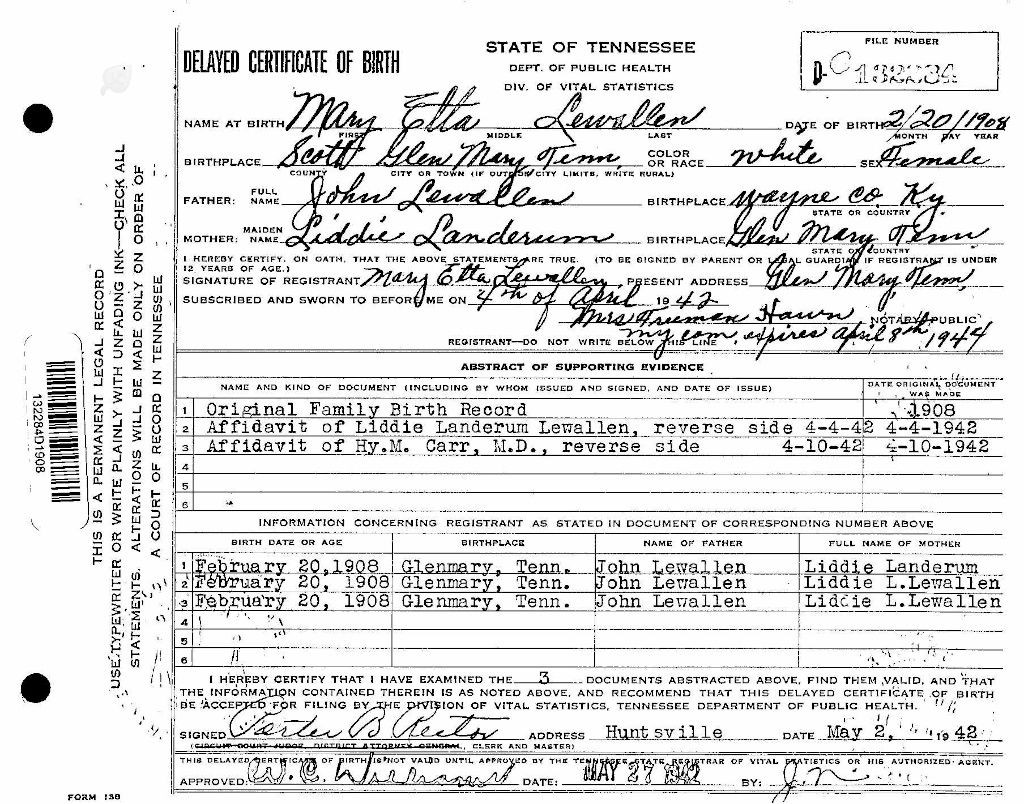 DELAYED CERTIFICATE OF BIRTH
STATE OF TENNESSEE
DEPT. OF PUBLIC HEALTH
DIV. OF VITAL STATISTICS
FILE NUMBER
D-
NAME AT BIRTH Mary Etta Lewallen DATE OF BIRTH 2/20/1908
FIRST MIDDLE LAST MONTH DAY YEAR
BIRTHPLACE Scott Glen Mary Tenn COLOR OR RACE White SEX Female
COUNTY CITY OR TOWN (IF OUTSIDE CITY LIMITS, WRITE RURAL)
FATHER: FULL NAME John Lewallen BIRTHPLACE Wayne Co. Ky.
STATE OR COUNTRY
MOTHER: MAIDEN NAME Liddie Landerum BIRTHPLACE Glen Mary, Tenn
STATE OR COUNTRY
I HEREBY CERTIFY, ON OATH, THAT THE ABOVE STATEMENTS ARE TRUE. (TO BE SIGNED BY PARENT OR LEGAL GUARDIAN IF REGISTRANT IS UNDER
12 YEARS OF AGE.)
SIGNATURE OF REGISTRANT Mary Etta Lewallen, PRESENT ADDRESS Glen Mary, Tenn,
SUBSCRIBED AND SWORN TO BEFORE ME ON 4th of April 1942
Mrs Freeman Hawn, NOTARY PUBLIC
my com, expires April 8th, 1944
REGISTRANT—DO NOT WRITE BELOW THIS LINE
ABSTRACT OF SUPPORTING EVIDENCE
NAME AND KIND OF DOCUMENT (INCLUDING BY WHOM ISSUED AND SIGNED, AND DATE OF ISSUE) DATE ORIGINAL DOCUMENT WAS MADE
1 Original Family Birth Record 1908
2 Affidavit of Liddie Landerum Lewallen, reverse side 4-4-42 4-4-1942
3 Affidavit of Hy.M. Carr, M.D., reverse side 4-10-42 4-10-1942
4
5
6
INFORMATION CONCERNING REGISTRANT AS STATED IN DOCUMENT OF CORRESPONDING NUMBER ABOVE
BIRTH DATE OR AGE BIRTHPLACE NAME OF FATHER FULL NAME OF MOTHER
1 February 20,1908 Glenmary, Tenn. John Lewallen Liddie Landerum
2 February 20, 1908 Glenmary, Tenn. John Lewallen Liddie L.Lewallen
3 February 20, 1908 Glenmary, Tenn. John Lewallen Liddie L.Lewallen
4
5
6
I HEREBY CERTIFY THAT I HAVE EXAMINED THE 3 DOCUMENTS ABSTRACTED ABOVE, FIND THEM VALID, AND THAT
THE INFORMATION CONTAINED THEREIN IS AS NOTED ABOVE, AND RECOMMEND THAT THIS DELAYED CERTIFICATE OF BIRTH
BE ACCEPTED FOR FILING BY THE DIVISION OF VITAL STATISTICS, TENNESSEE DEPARTMENT OF PUBLIC HEALTH.
SIGNED B Rector ADDRESS Huntsville DATE May 2, 1942
(CIRCUIT COURT JUDGE, DISTRICT ATTORNEY GENERAL, CLERK AND MASTER)
THIS DELAYED CERTIFICATE OF BIRTH IS NOT VALID UNTIL APPROVED BY THE TENNESSEE STATE REGISTRAR OF VITAL STATISTICS OR HIS AUTHORIZED AGENT.
APPROVED: DATE: MAY 27 1942 BY:
FORM 138
THIS IS A PERMANENT LEGAL RECORD
USE TYPEWRITER OR WRITE PLAINLY WITH UNFADING INK—CHECK ALL
STATEMENTS. ALTERATIONS WILL BE MADE ONLY ON ORDER OF
A COURT OF RECORD IN TENNESSEE
132284D1908